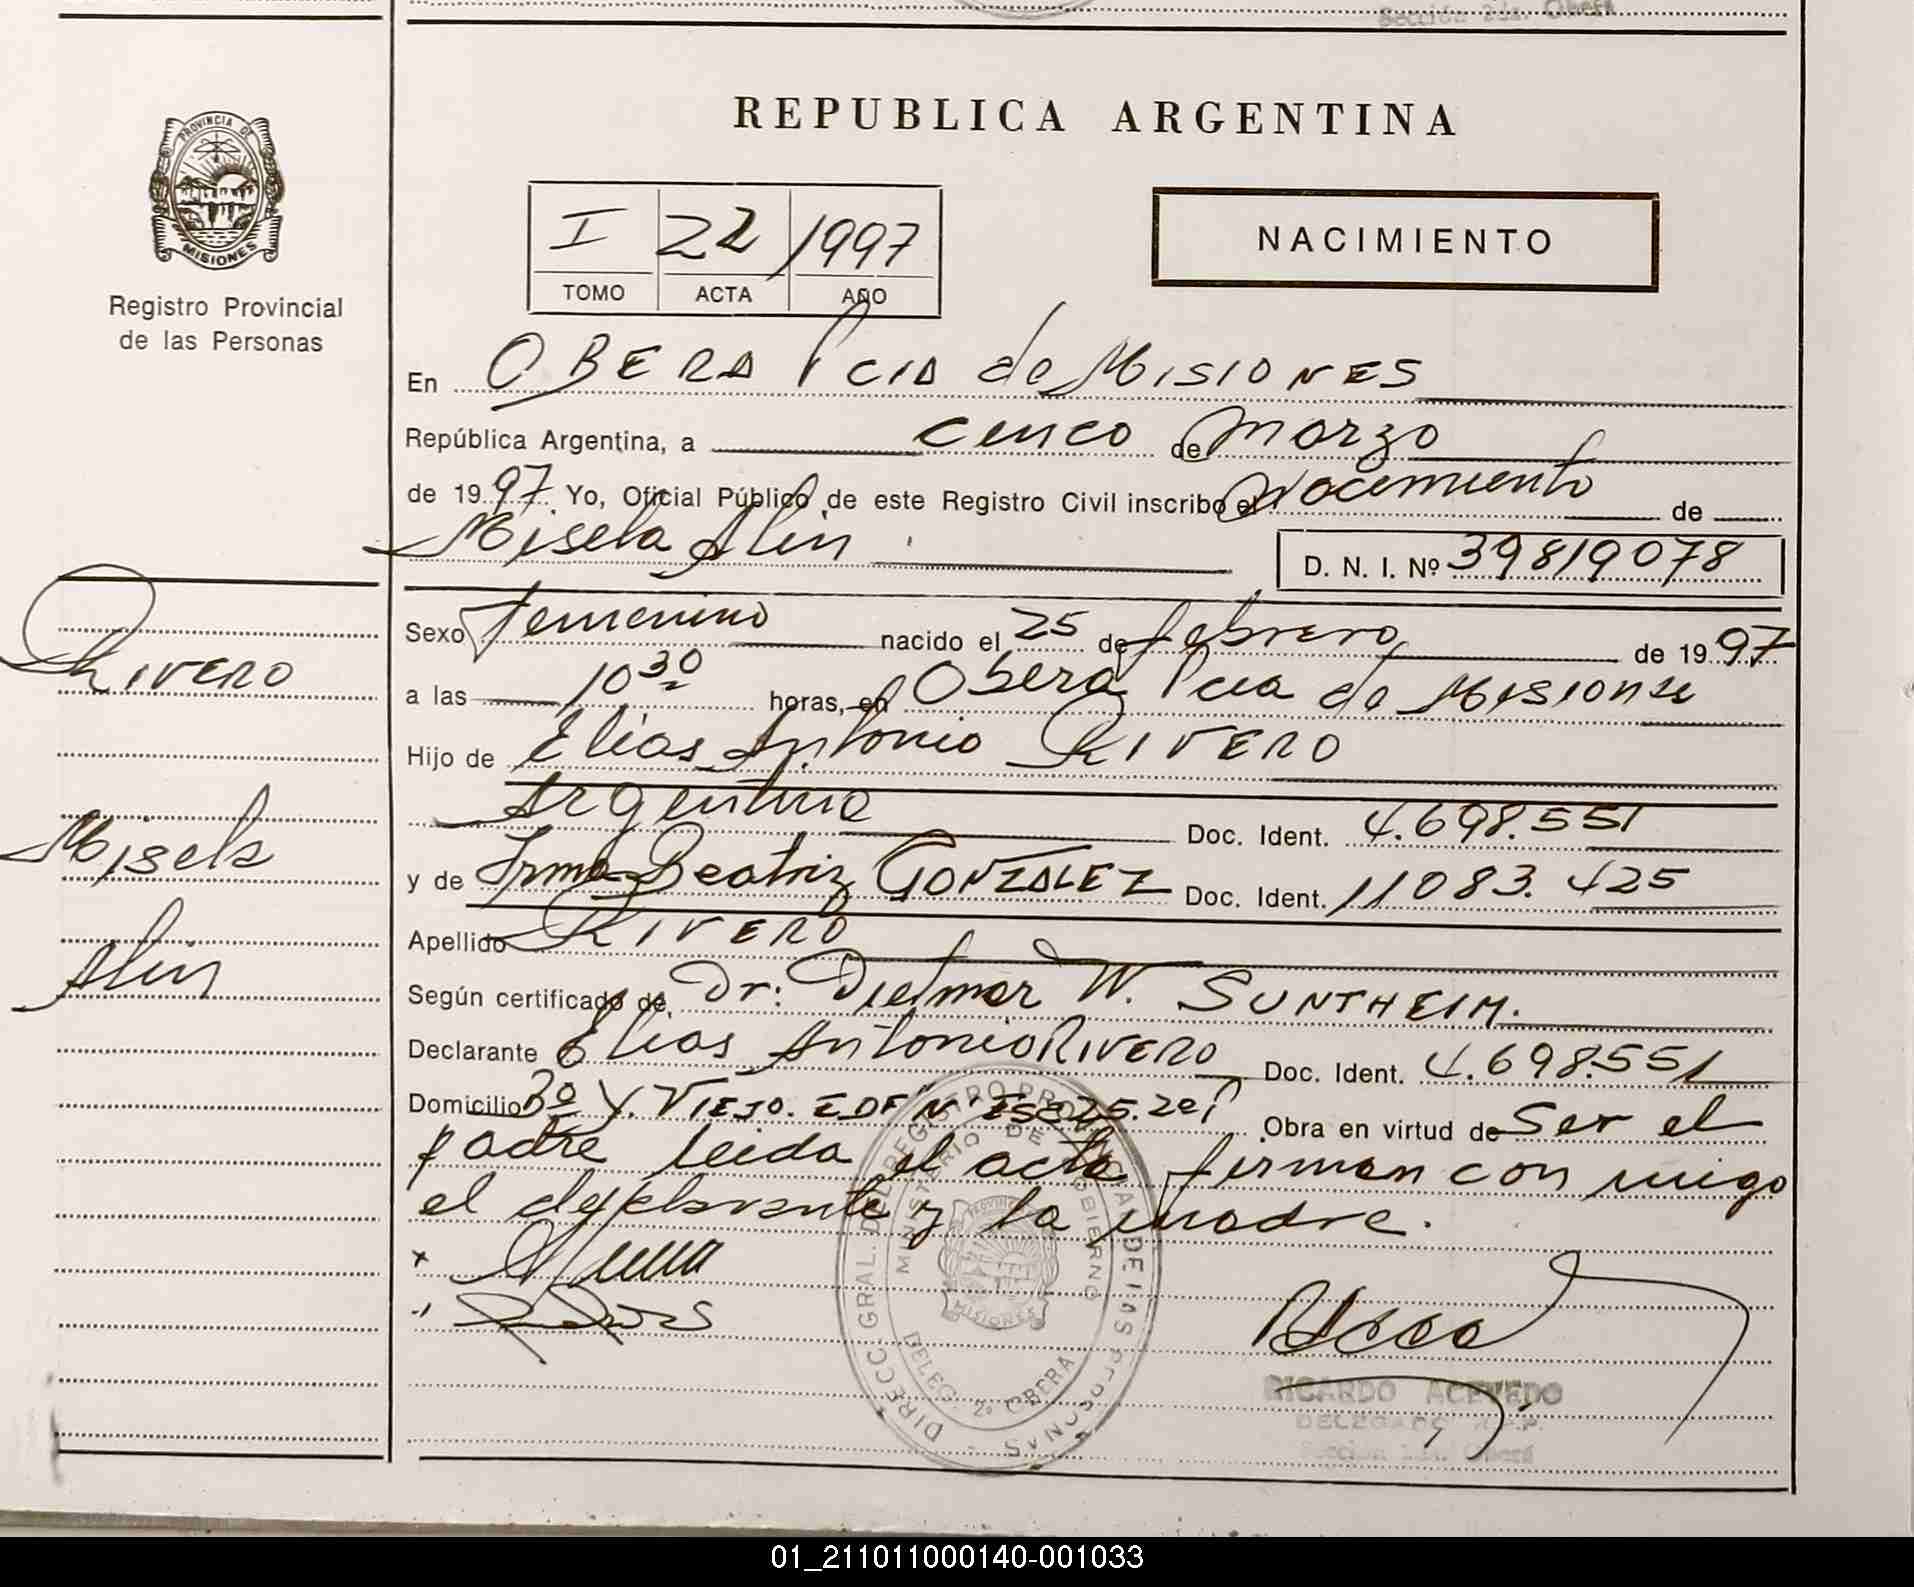 Sección 2da. Oberá
REPUBLICA ARGENTINA
PROVINCIA DE
MISIONES
Registro Provincial
de las Personas
I 22 1997
TOMO ACTA AÑO
NACIMIENTO
En OBERA Pcia de MISIONES
República Argentina, a cinco de Marzo
de 1997. Yo, Oficial Público de este Registro Civil inscribo el Nacimiento de
Misela Alin
D. N. I. Nº 39819078
Sexo femenino nacido el 25 de febrero de 1997
a las 10 30 horas, en Obera Pcia de Misiones
Hijo de Elias Antonio RIVERO
Argentino Doc. Ident. 4.698.551
y de Irma Beatriz GONZALEZ Doc. Ident. 11083.425
Apellido RIVERO
Según certificado de Dr: Dietmar W. SUNTHEIM.
Declarante Elias Antonio RIVERO Doc. Ident. 4.698.551
Domicilio Bº Y. VIEJO. EDF Nº ESC 25. Obra en virtud de Ser el
padre leida el acta firman conmigo
el declarante y la madre.
RIVERO
Misela
Alin
DIRECC. GRAL. DEL REGISTRO PROVINCIAL DE LAS PERSONAS
MINISTERIO DE GOBIERNO
PROVINCIA
MISIONES
DELEG. 2º OBERA
RICARDO ACEVEDO
DELEGADO R.P.P.
Sección 2da. Oberá
01_211011000140-001033